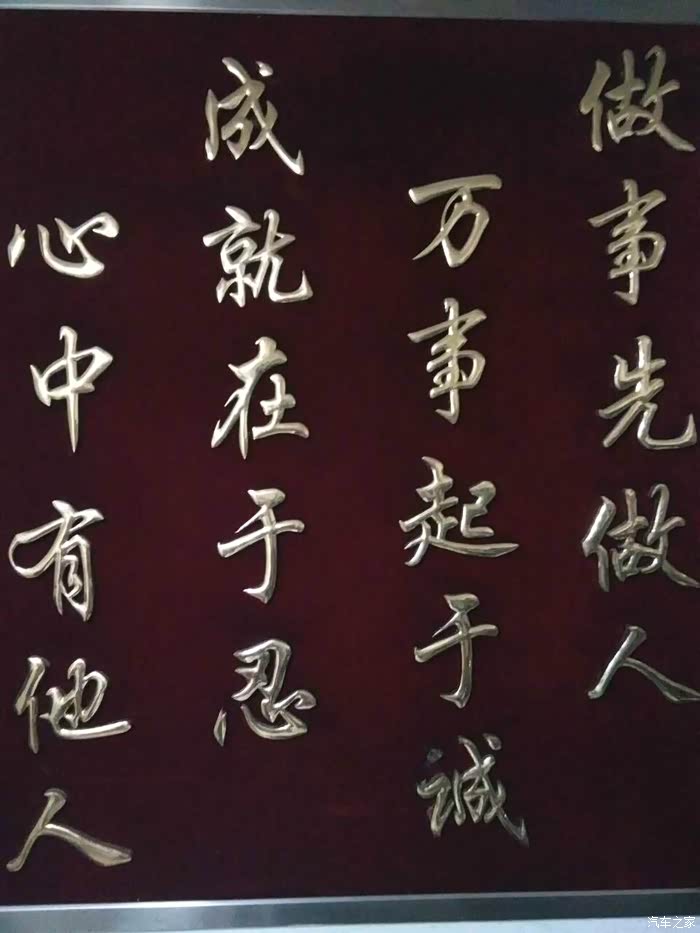 做事先做人
万事起于诚
成就在于忍
心中有他人
汽车之家